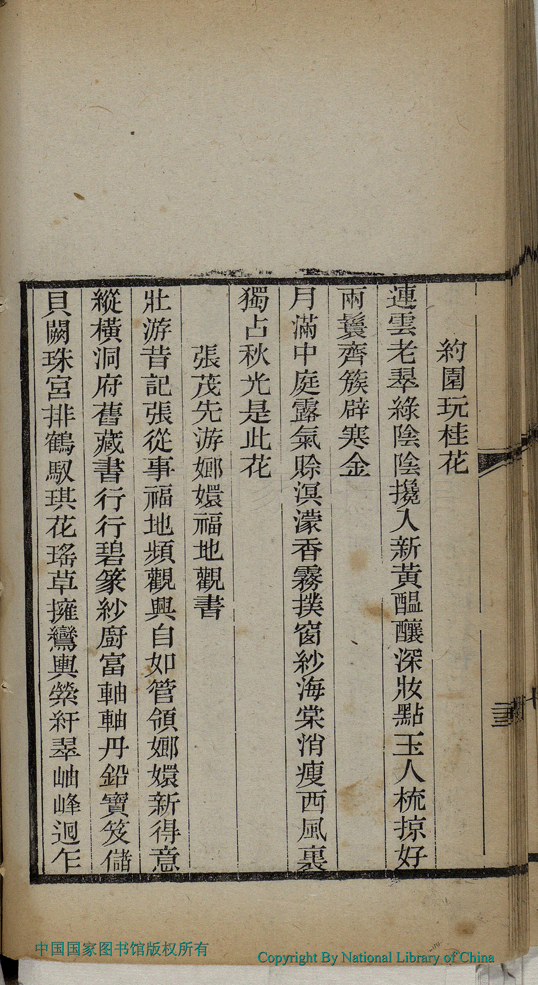 約園玩桂花
連雲老翠綠陰陰攙入新黃醞釀深妝點玉人梳掠好
兩鬟齊簇辟寒金
月滿中庭露氣賒溟濛香霧撲窗紗海棠消瘦西風裏
獨占秋光是此花
張茂先游嫏嬛福地觀書
壯游昔記張從事福地頻觀興自如管領嫏嬛新得意
縱橫洞府舊藏書行行碧篆紗廚富軸軸丹鉛寶笈儲
貝闕珠宮排鶴馭琪花瑤草擁鸞輿縈紆翠岫峰迴乍
中国国家图书馆版权所有
Copyright By National Library of China